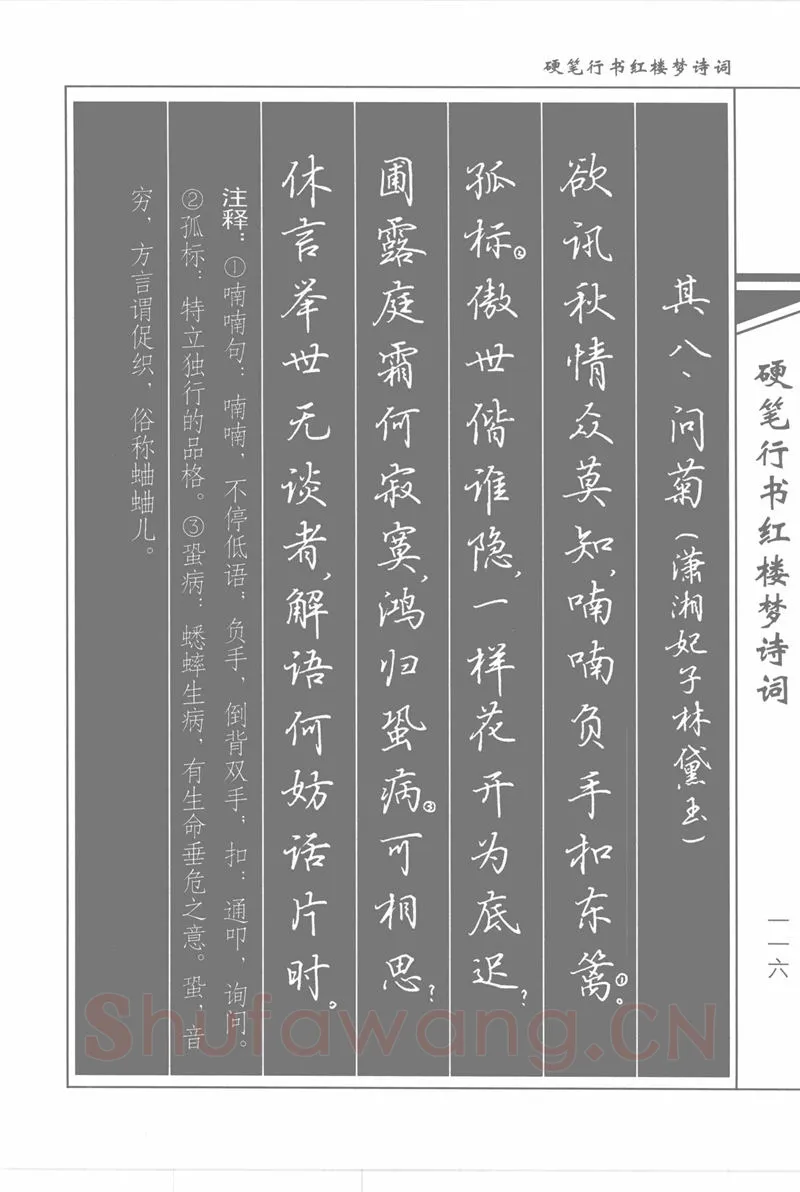 硬笔行书红楼梦诗词
其八、问菊(潇湘妃子林黛玉)
欲讯秋情众莫知,喃喃负手扣东篱①。
孤标②傲世偕谁隐,一样花开为底迟?
圃露庭霜何寂寞,鸿归蛩病③可相思?
休言举世无谈者,解语何妨话片时。
注释:①喃喃句:喃喃,不停低语;负手,倒背双手;扣:通叩,询问。
②孤标:特立独行的品格。③蛩病:蟋蟀生病,有生命垂危之意。蛩,音
穷,方言谓促织,俗称蛐蛐儿。
硬笔行书红楼梦诗词
一一六
Shufawang.CN